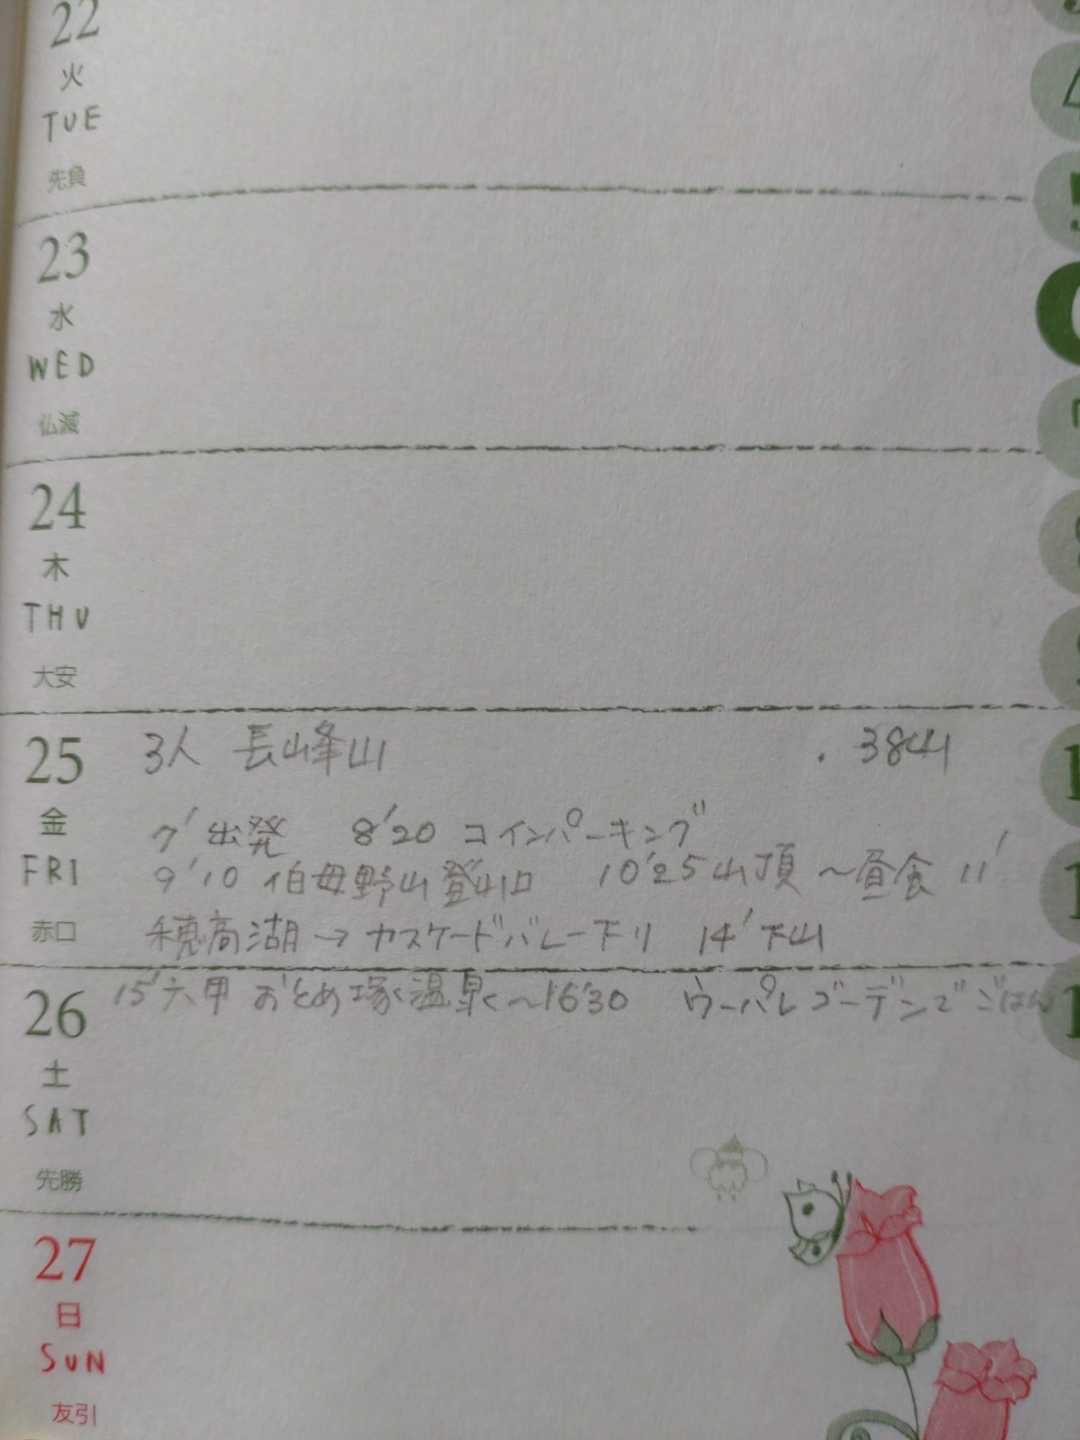 22
火
TUE
先負
23
水
WED
仏滅
24
木
THU
大安
25
金
FRI
赤口
3人 長峰山 . 38山
7' 出発 8'20 コインパーキング
9'10 伯母野山登山口 10'25山頂 〜昼食 11'
穂高湖→カスケードバレー下り 14'下山
15'六甲 おとめ塚温泉〜16'30 ウーパレゴーデンでごはん
26
土
SAT
先勝
27
日
SUN
友引